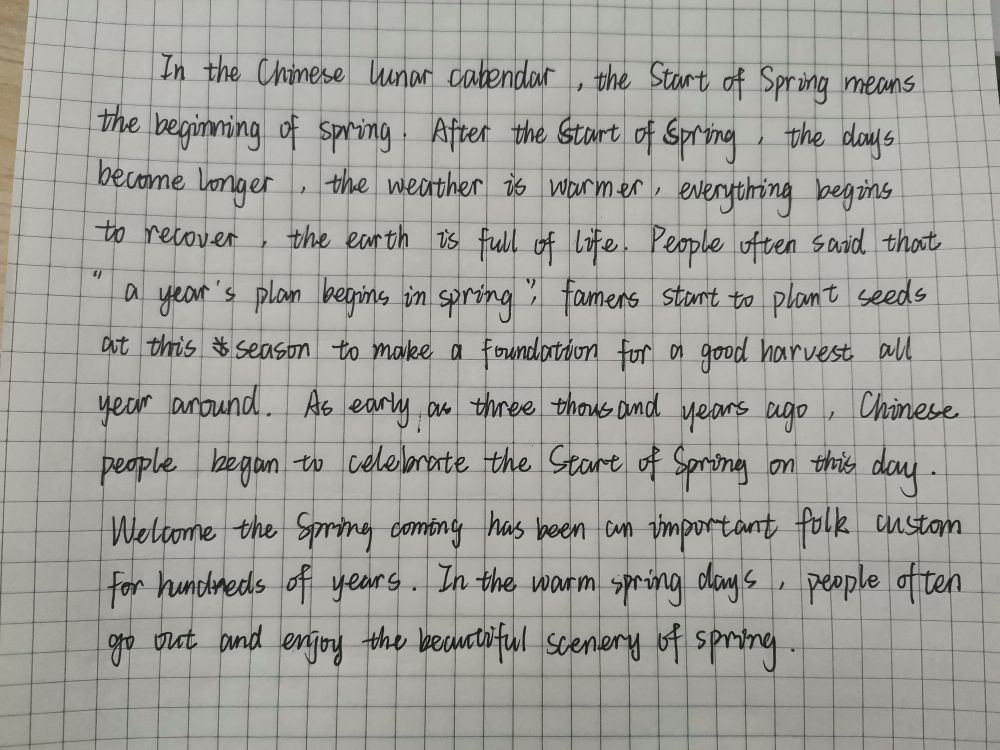 In the Chinese lunar cabendar , the Start of Spring means
the beginning of spring . After the Start of Spring , the days
become longer , the weather is warmer , everything begins
to recover , the earth is full of life . People often said that
" a year's plan begins in spring ", famers start to plant seeds
at this season to make a foundation for a good harvest all
year around . As early as three thousand years ago , Chinese
people began to celebrate the Start of Spring on this day .
Welcome the Spring coming has been an important folk custom
for hundreds of years . In the warm spring days , people often
go out and enjoy the beautiful scenery of spring .